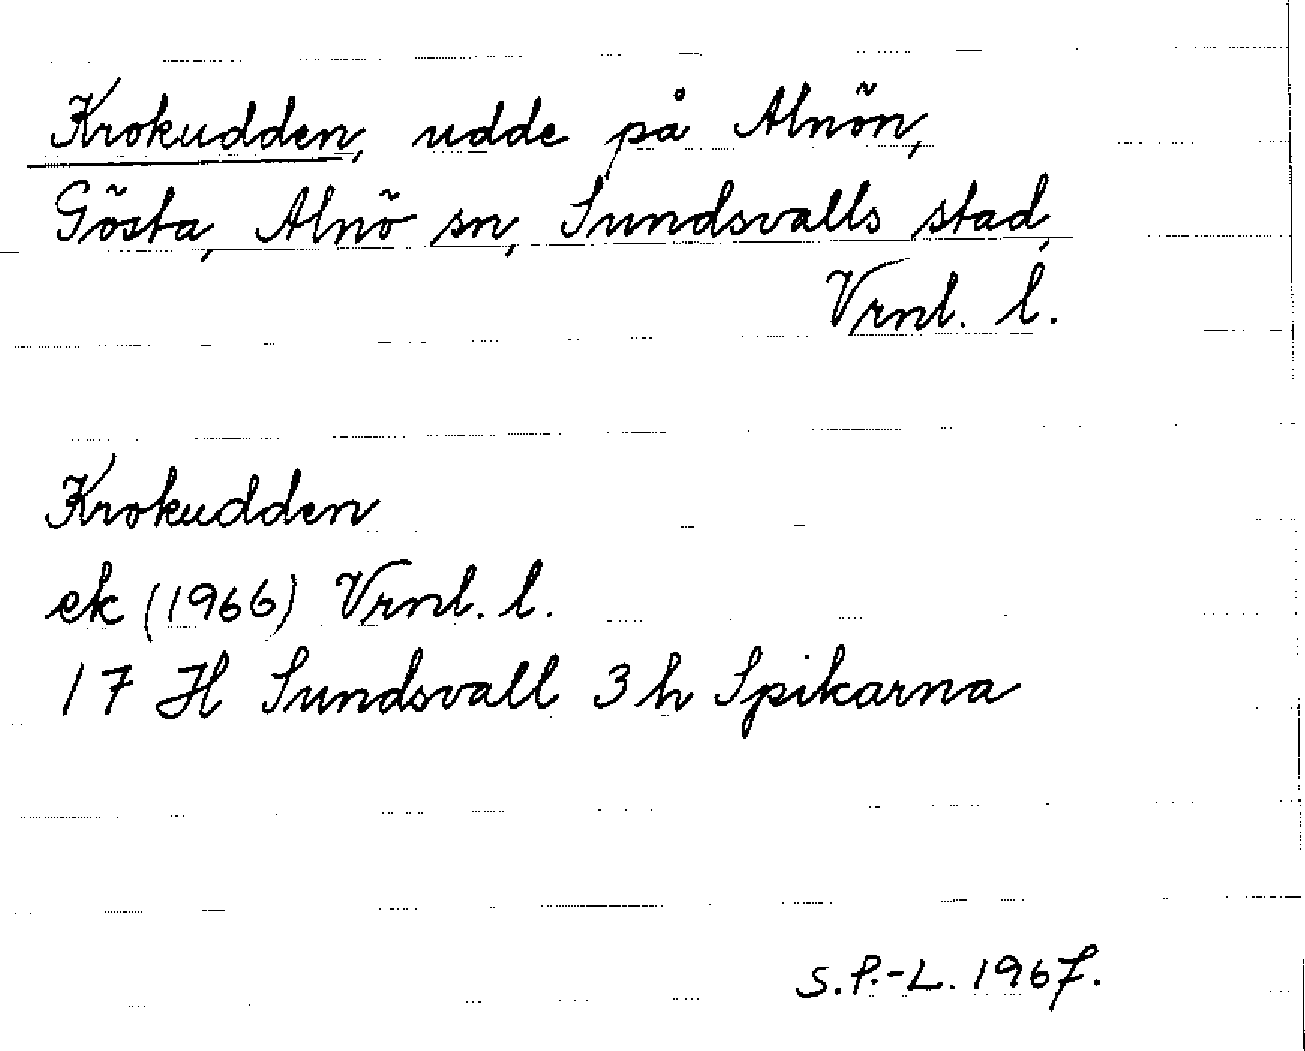 Krokudden, udde på Alnön,
Gösta, Alnö sn, Sundsvalls stad,
Vrnl. l.
Krokudden
ek (1966) Vrnl. l.
17 H Sundsvall 3 h Spikarna
S.P.-L. 1967.